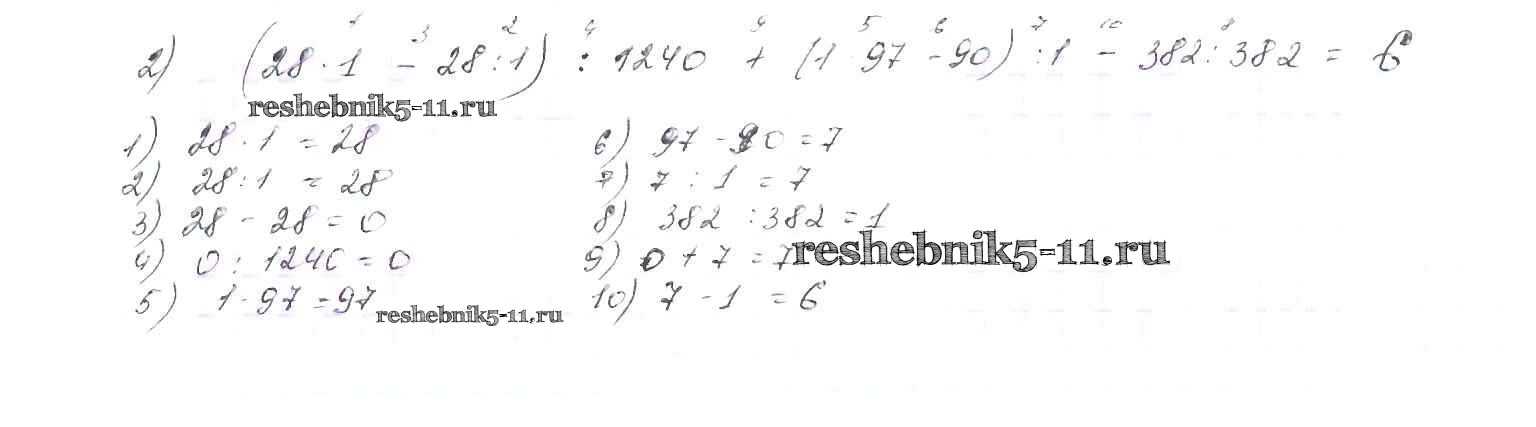 1 3 2 4 9 5 6 7 10 8
2) (28 · 1 - 28 : 1) : 1240 + (1 · 97 - 90) : 1 - 382 : 382 = 6
reshebnik5-11.ru
1) 28 · 1 = 28 6) 97 - 90 = 7
2) 28 : 1 = 28 7) 7 : 1 = 7
3) 28 - 28 = 0 8) 382 : 382 = 1
4) 0 : 1240 = 0 9) 0 + 7 = 7 reshebnik5-11.ru
5) 1 · 97 = 97 reshebnik5-11.ru 10) 7 - 1 = 6